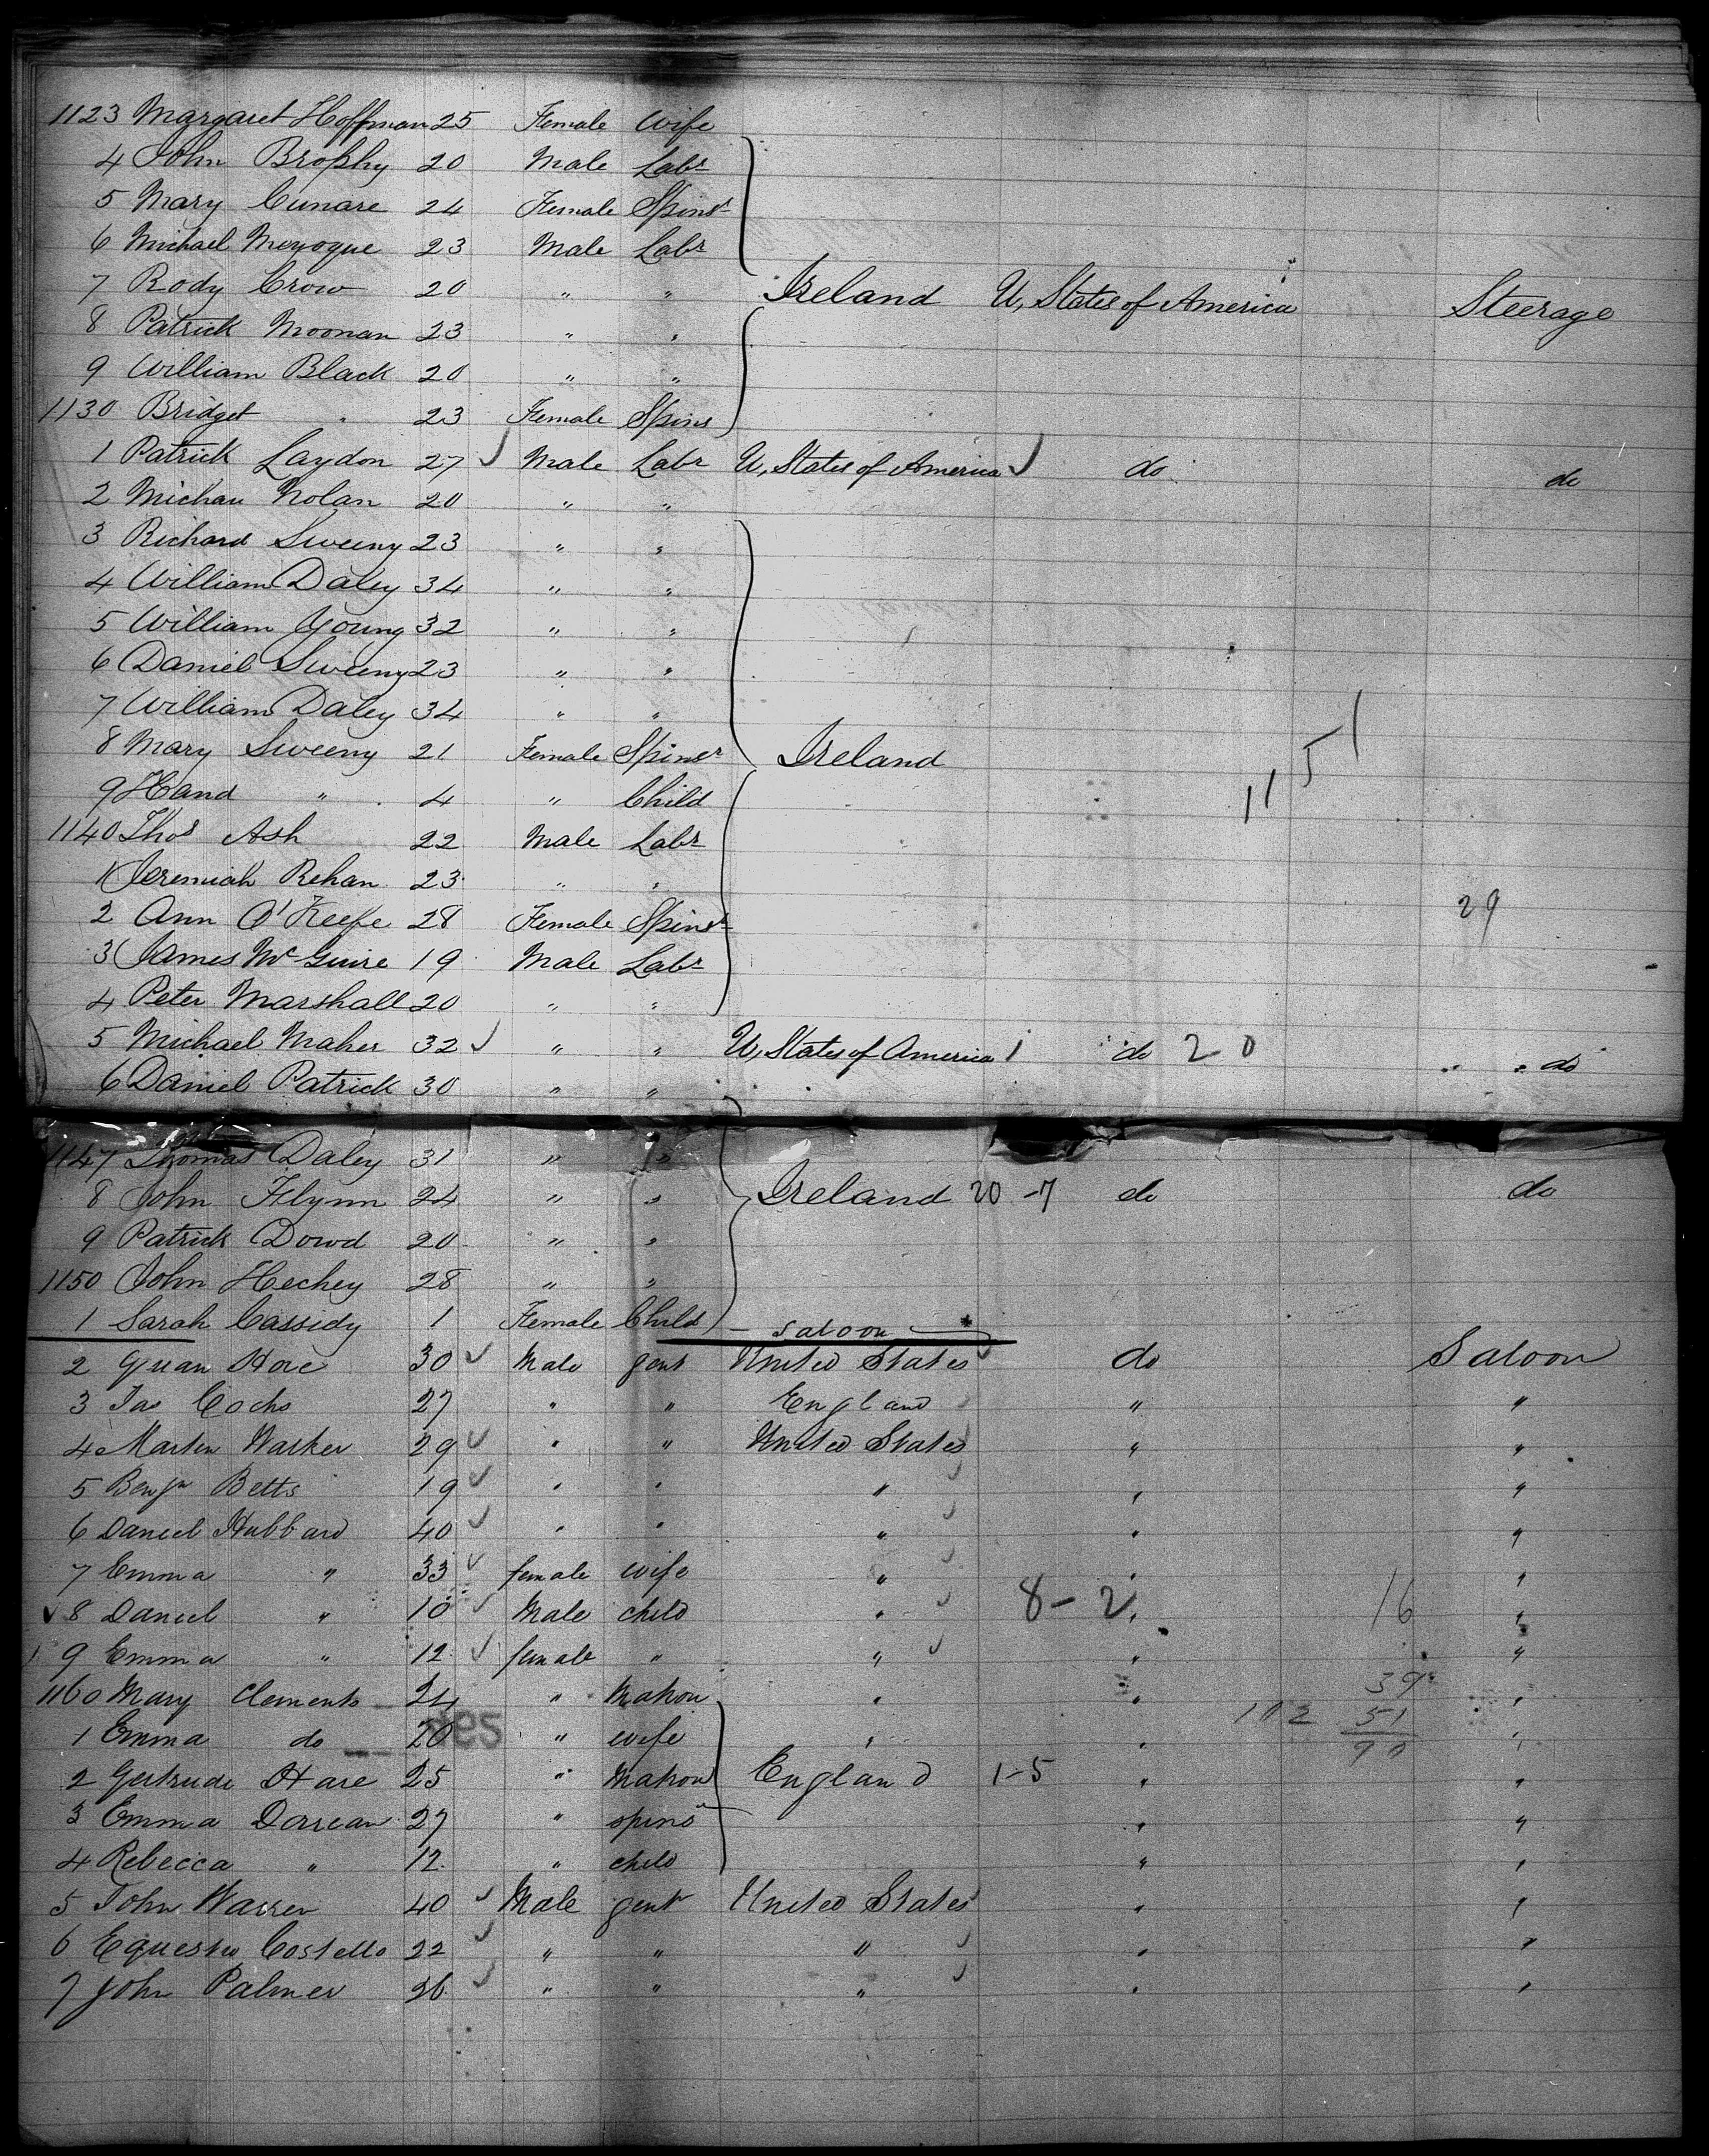 1123 Margaret Hoffman 25 Female Wife
4 John Brophy 20 Male Labr
5 Mary Cunare 24 Female Spinsr
6 Michael 23 Male Labr
7 Rody Crow 20 " " Ireland U, States of America Steerage
8 Patrick Moonan 23 " "
9 William Black 20 " "
1130 Bridget " 23 Female Spins
1 Patrick Laydon 27 ✓ Male Labr U, States of America ✓ do do
2 Michau Nolan 20 " "
3 Richard Sweeny 23 " "
4 William Daley 34 " "
5 William Young 32 " "
6 Daniel Sweeny 23 " "
7 William Daley 34 " "
8 Mary Sweeny 21 Female Spinsr Ireland 1151
9 Hand " 4 " Child
1140 Thos Ash 22 Male Labr
1 Jeremiah Rehan 23 " "
2 Ann O'Keefe 28 Female Spinsr 29
3 James McGuire 19 Male Labr
4 Peter Marshall 20 " "
5 Michael Maher 32 ✓ " " U, States of America do 20 do
6 Daniel Patrick 30 " "
1147 Thomas Daley 31 " "
8 John Flynn 24 " " Ireland 20-7 do do
9 Patrick Dowd 20 " "
1150 John Hechey 28 " "
1 Sarah Cassidy 1 Female Child saloon
2 Hore 30 ✓ Male gent United States do Saloon
3 Jas Cochs 27 " " England " "
4 Martin Warker 29 ✓ " " United States " "
5 Benjn Betts 19 ✓ " " " " "
6 Daniel Hubbard 40 ✓ " " " " "
7 Emma " 33 ✓ female wife " " "
✓ 8 Daniel " 10 ✓ Male child " 8-2 " 16 "
9 Emma " 12 ✓ female " " " "
1160 Mary Clements 24 " Matron " " 39 "
1 Emma do 20 " wife " " 112 51 "
90
2 Gertrude Hare 25 " Matron England 1-5 " "
3 Emma 27 " spins " "
4 Rebecca " 12 " child " "
5 John Warren 40 ✓ Male gent United States " "
6 Costello 22 ✓ " " " " "
7 John Palmer 26 ✓ " " " " "